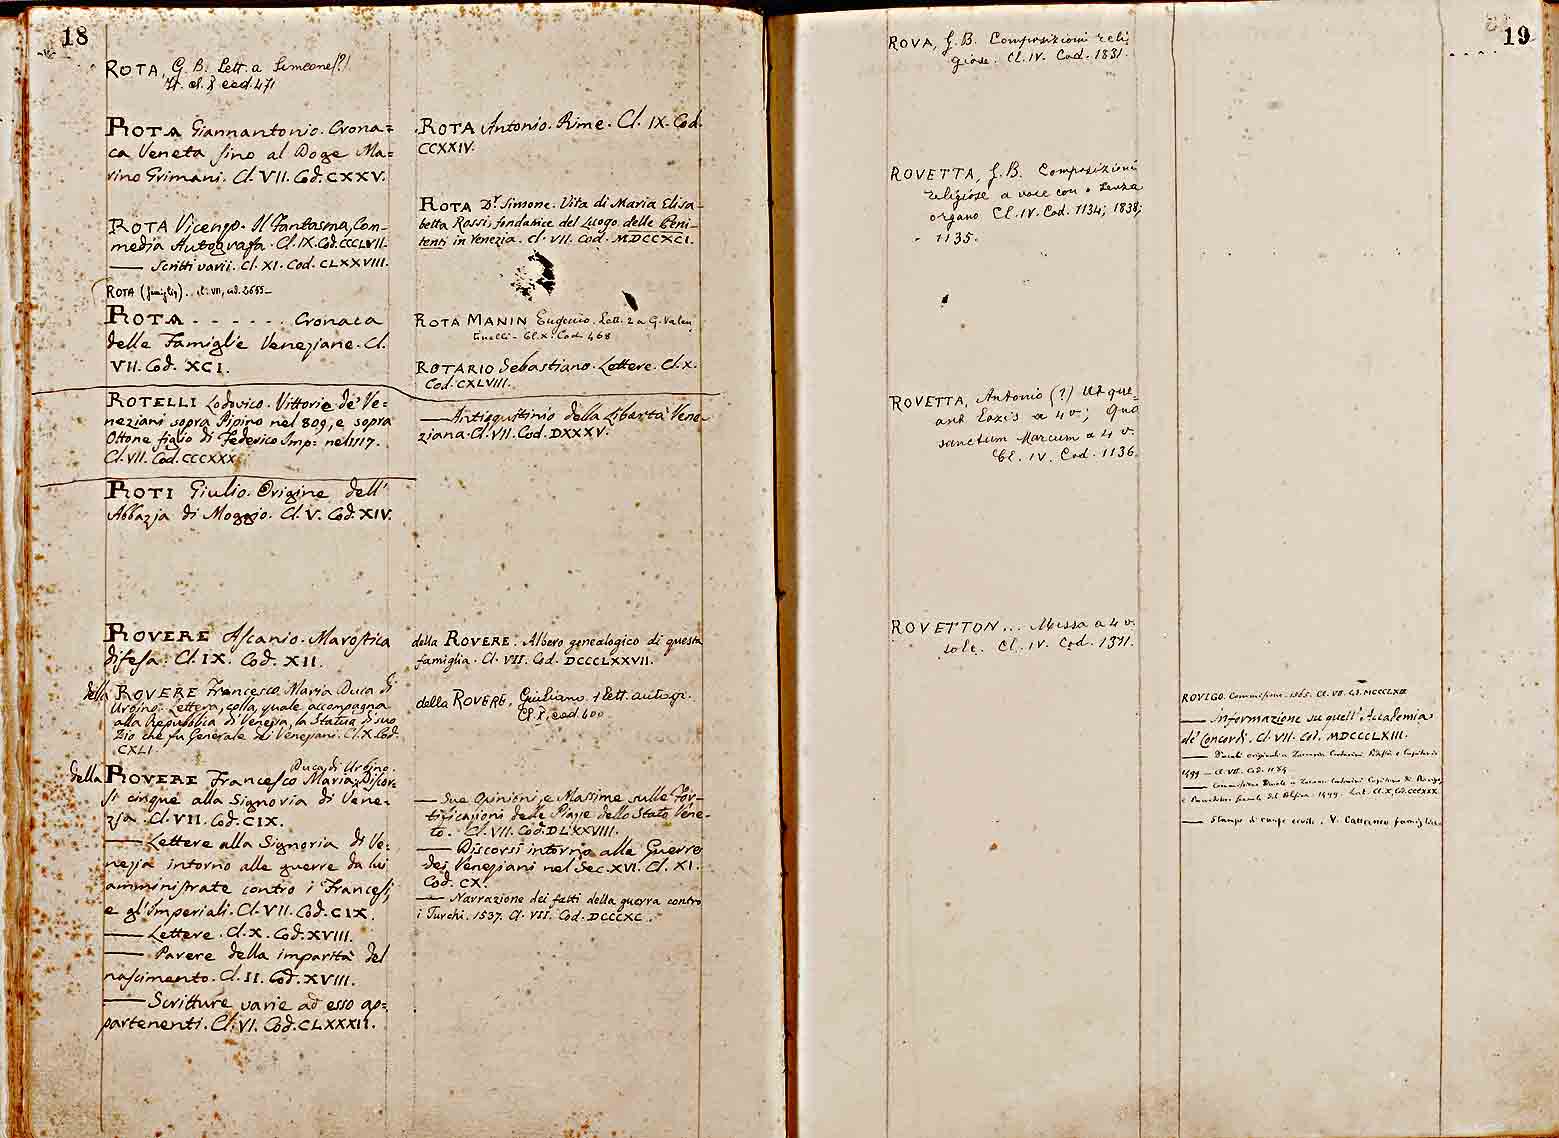 18
ROTA, G. B. Lett. a Simeone(?)
It. cl. X cod. 471
ROTA Giannantonio. Crona=
ca Veneta sino al Doge Ma=
rino Grimani. Cl. VII. Cod. CXXV.
ROTA Vicenzo. Il Fantasma, Com-
media Autografa. Cl. IX. Cod. CCCLVII.
—— Scritti varii. Cl. XI. Cod. CLXXVIII.
ROTA (famiglia). Cl. VII, cod.
ROTA . . . . . . Cronaca
delle Famiglie Veneziane. Cl.
VII. Cod. XCI.
ROTELLI Lodovico. Vittorie de' Ve=
neziani sopra Pipino nel 809, e sopra
Ottone figlio di Federico Imp= nel 1117.
Cl. VII. Cod. CCCXXX.
ROTI Giulio. Origine dell'
Abbazia di Moggio. Cl. V. Cod. XIV.
ROVERE Ascanio. Marostica
difesa. Cl. IX. Cod. XII.
della ROVERE Francesco Maria Duca di
Urbino. Lettera, colla quale accompagna
alla Repubblica di Venezia, la Statua di suo
Zio che fu Generale dei Veneziani. Cl. X. Cod.
CXLI.
Duca di Urbino.
della ROVERE Francesco Maria, Discor=
si cinque alla Signoria di Vene=
zia. Cl. VII. Cod. CIX.
—— Lettere alla Signoria di Ve=
nezia intorno alle guerre da lui
amministrate contro i Francesi,
e gl'Imperiali. Cl. VII. Cod. CIX.
—— Lettere. Cl. X. Cod. XVIII.
—— Parere della imparità del
nascimento. Cl. II. Cod. XVIII.
—— Scritture varie ad esso ap=
partenenti. Cl. VI. Cod. CLXXXII.
ROTA Antonio. Rime. Cl. IX. Cod.
CCXXIV.
ROTA Dr. Simone. Vita di Maria Elisa-
betta Rossi, fondatrice del Luogo delle Peni-
tenti in Venezia. Cl. VII. Cod. MDCCXCI.
ROTA MANIN Eugenio. Lett. 2 a G. Valen
tinelli - Cl. X. Cod. 468
ROTARIO Sebastiano. Lettere. Cl. X.
Cod. CXLVIII.
—— Antisquitinio della Libertà Vene-
ziana. Cl. VII. Cod. DXXXV.
della ROVERE. Albero genealogico di questa
famiglia. Cl. VII. Cod. DCCCLXXVII.
della ROVERE, Giuliano. 1 Lett. autogr.
Cl. X, cod. 400
—— Sue Opinioni, e Massime sulle For-
tificazioni delle Piazze dello Stato Vene-
to. Cl. VII. Cod. DLXXVIII.
—— Discorsi intorno alle Guerre
dei Veneziani nel Sec. XVI. Cl. XI.
Cod. CX.
—— Narrazione dei fatti della guerra contro
i Turchi. 1537. Cl. VII. Cod. DCCCXC.
19
ROVA, G. B. Composizioni reli
giose. Cl. IV. Cod. 1831.
ROVETTA, G. B. Composizioni
religiose a voce con o senza
organo Cl. IV. Cod. 1134; 1838;
1135.
ROVETTA, Antonio (?) Ut que-
ant laxis a 4 v; Quo
sanctum Marcum a 4 v.
Cl. IV. Cod. 1136.
ROVETTON... Messa a 4 v.
sole. Cl. IV. Cod. 1371.
ROVIGO. Commissione. 1565. Cl. VII. Cod.
—— Informazione su quell'Accademia
de' Concordi. Cl. VII. Cod. MDCCCLXIII.
—— Ducali originali a Zaccaria Contarini Podestà e Capitanio
1499 - Cl. VII. Cod. 1184
—— Commissione Ducale a Zaccaria Contarini Capitano di Rovigo,
e Provveditor generale del Polesine. 1499. Lat. Cl. X. Cod. CCCXXX
—— Stampe di ruspe civili. V. Cattaneo famiglia